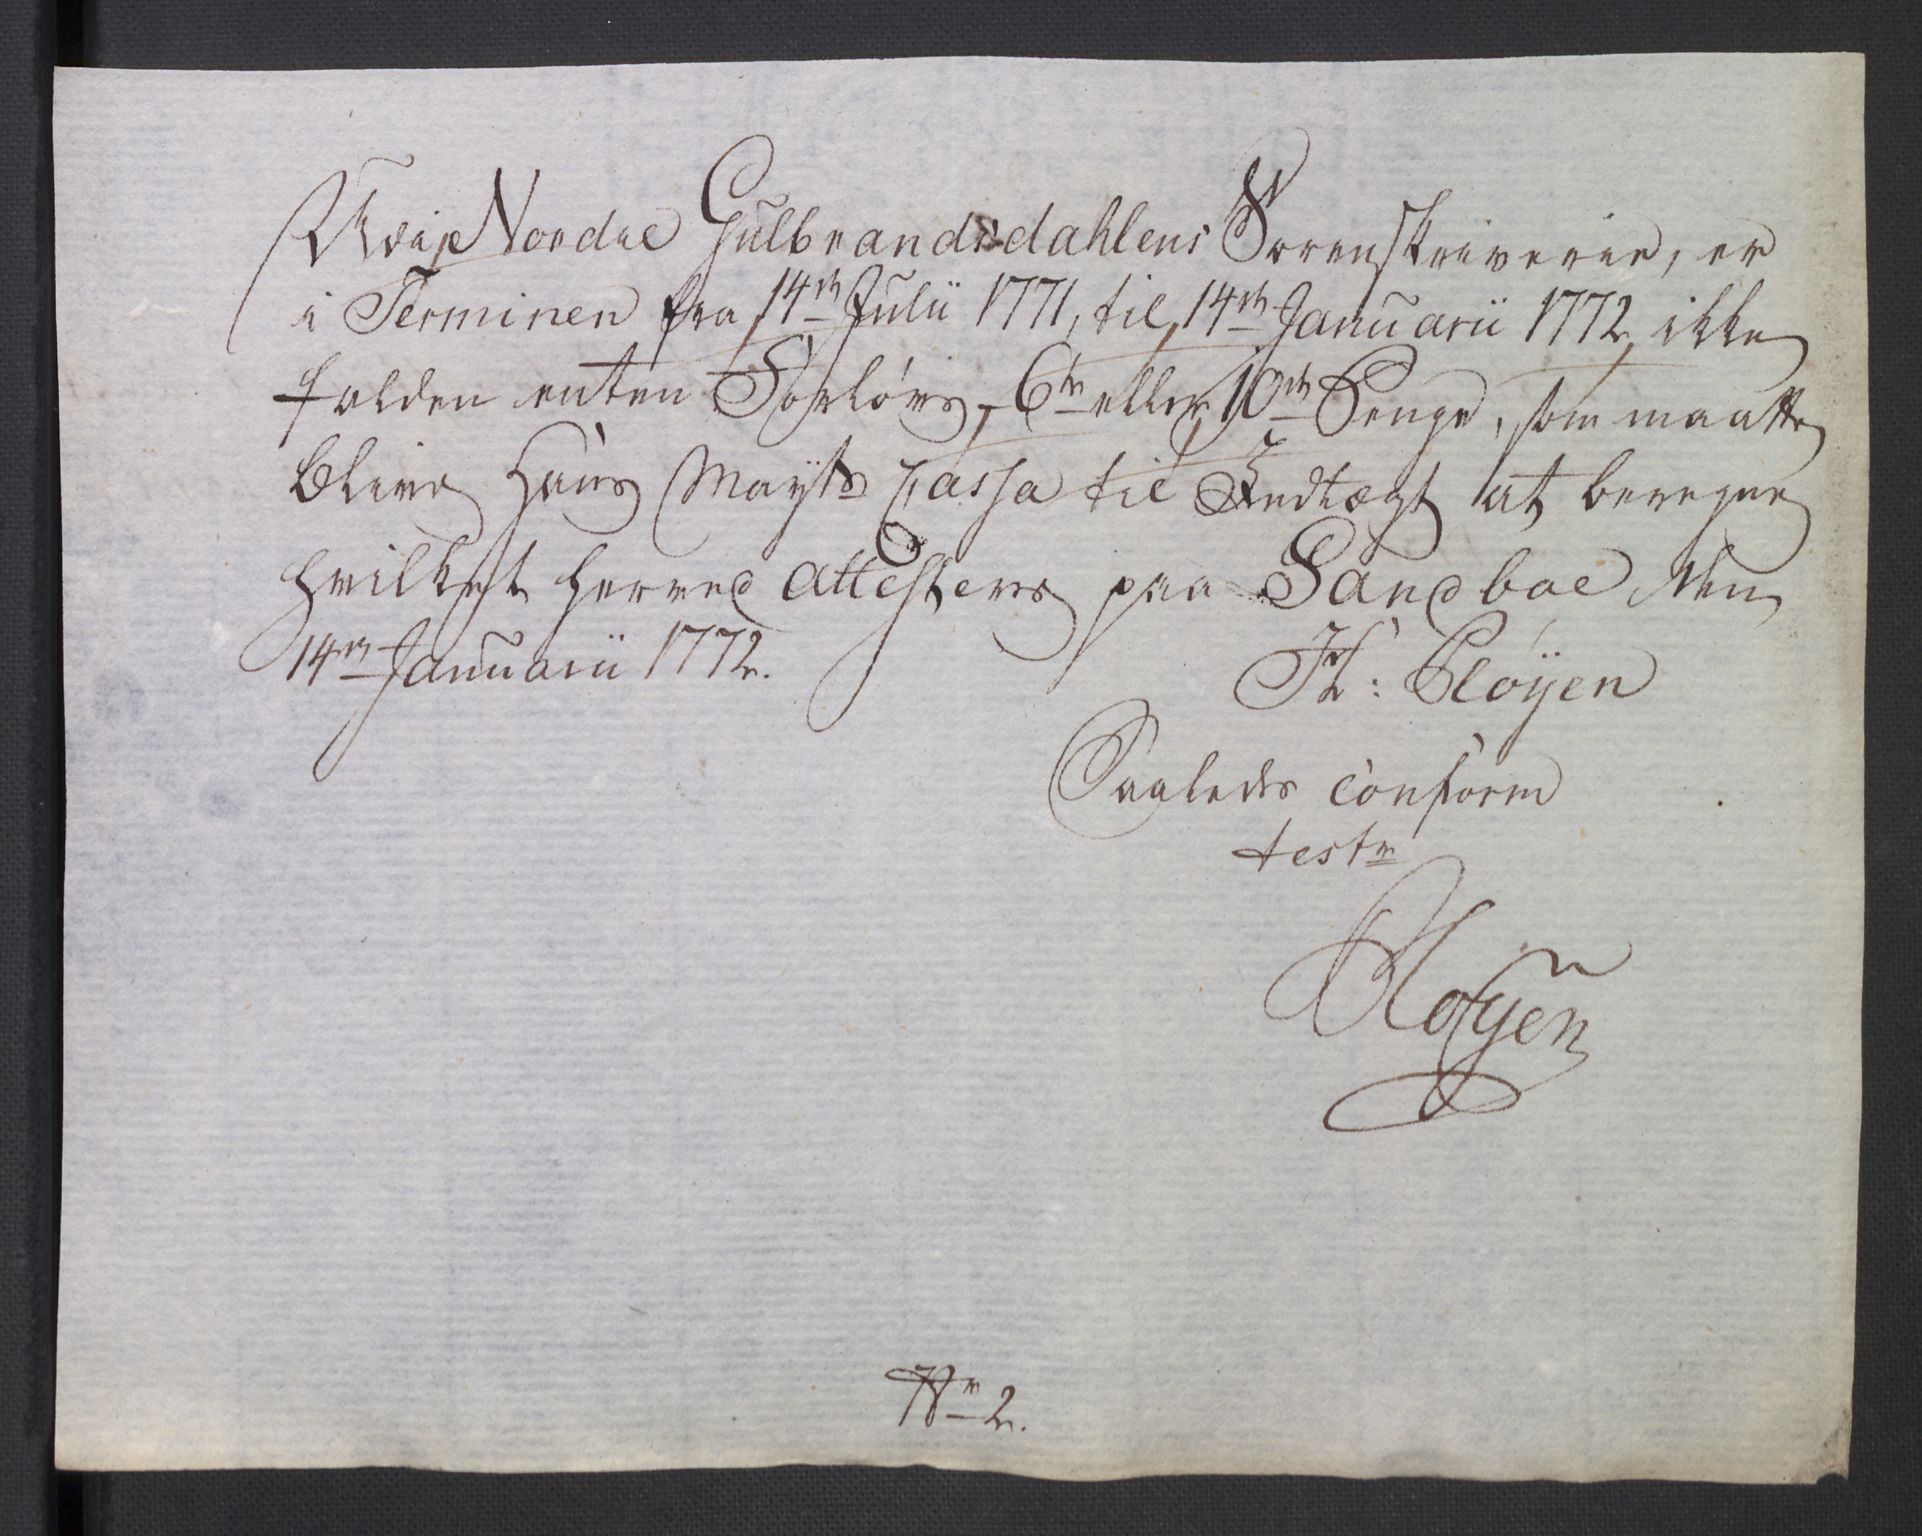 Ved Nordre Gulbrandsdahlens Sorenskriverie, er
i Terminen fra 14de Julii 1771, til 14de Januarii 1772 ikke
falden enten Forlovs, 6te eller 10de Penge, som maatte
blive Hans Mayts Cassa til Indtægt at beregne
hvilket herved attesteres paa Sandboe den
14de Januarii 1772.
H: Pløÿen
Saaledes conform
test
Pløyen
No 2.